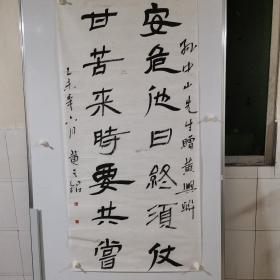 孫中山先生贈黃興聯
安危他日終須仗
甘苦來時要共嘗
乙未年 月 黄